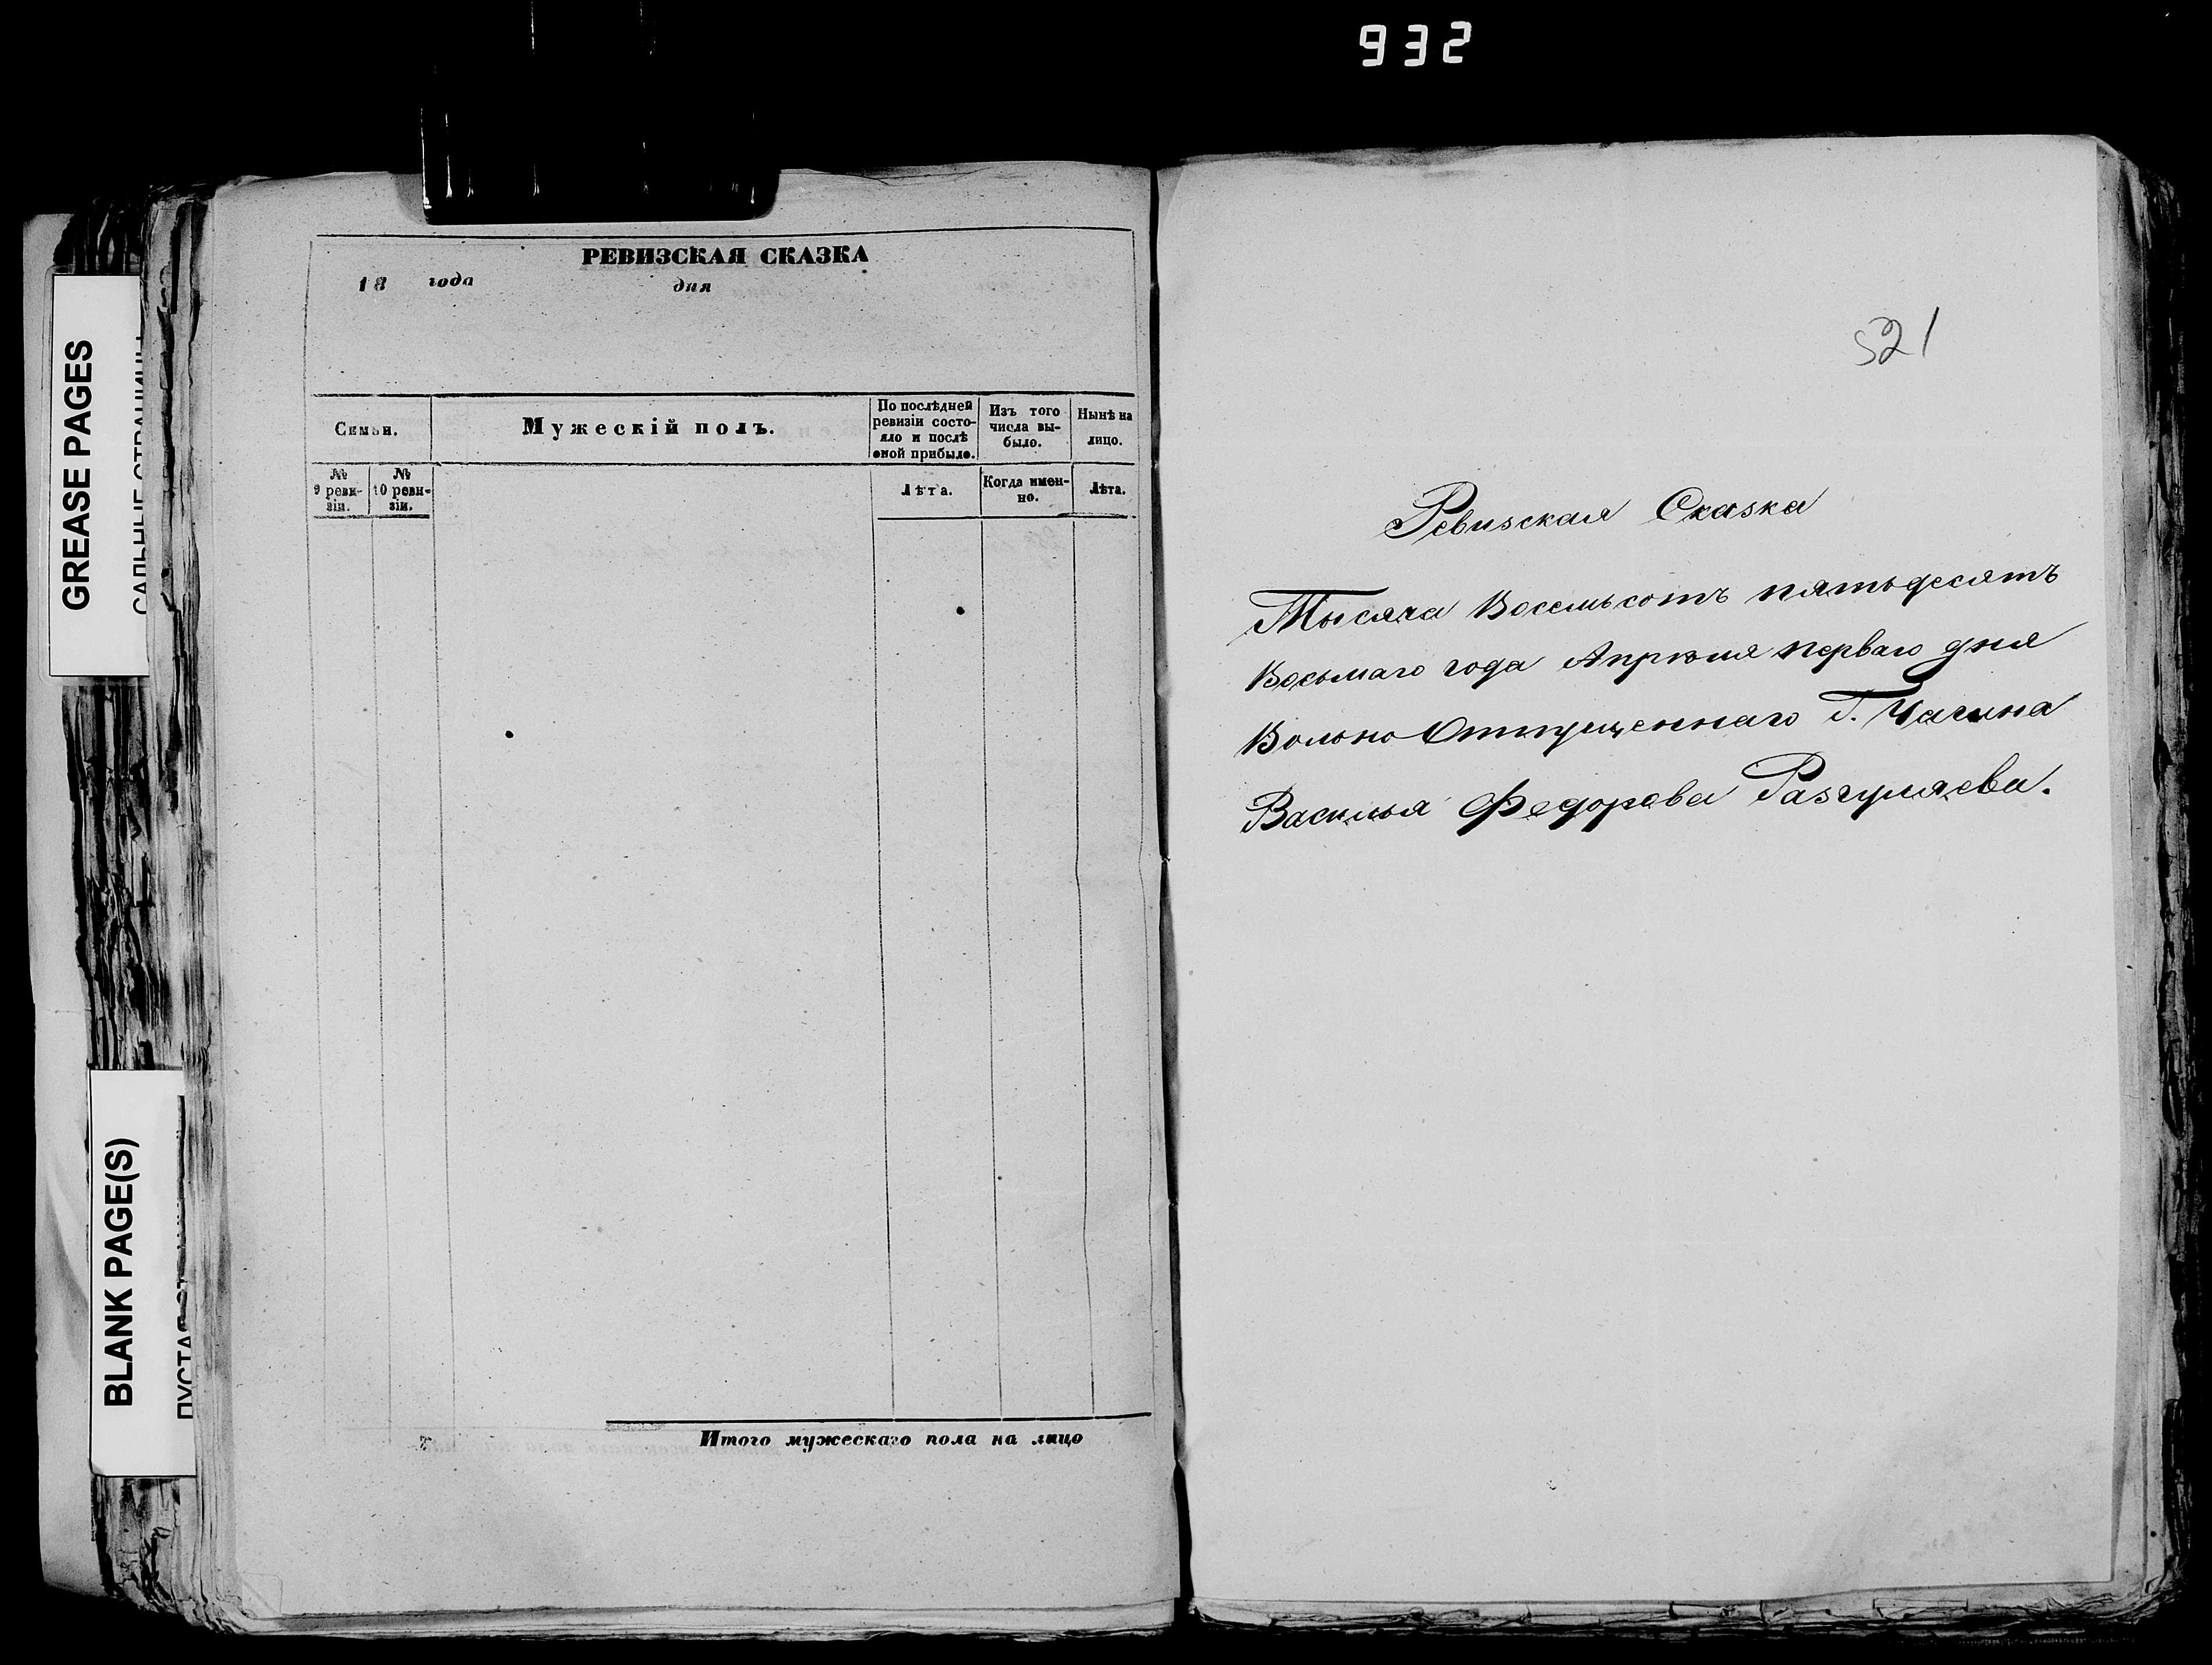 932
GREASE PAGES
BLANK PAGE(S)
РЕВИЗСКАЯ СКАЗКА
18 года дня
Семьи.
Мужескій полъ.
По послѣдней
ревизіи состо-
яло и послѣ
оной прибыло.
Изъ того
числа вы-
было.
Нынѣ на
лицо.
№
9 реви-
зіи.
№
10 реви-
зіи.
Лѣта.
Когда имен-
но.
Лѣта.
Итого мужескаго пола на лицо
521
Ревизская Сказка
Тысяча Восемьсотъ пятьдесятъ
Восьмаго года Апрѣля перваго дня
Вольно Отпущеннаго Г. Чагина
Василья Федорова Разгуляева.